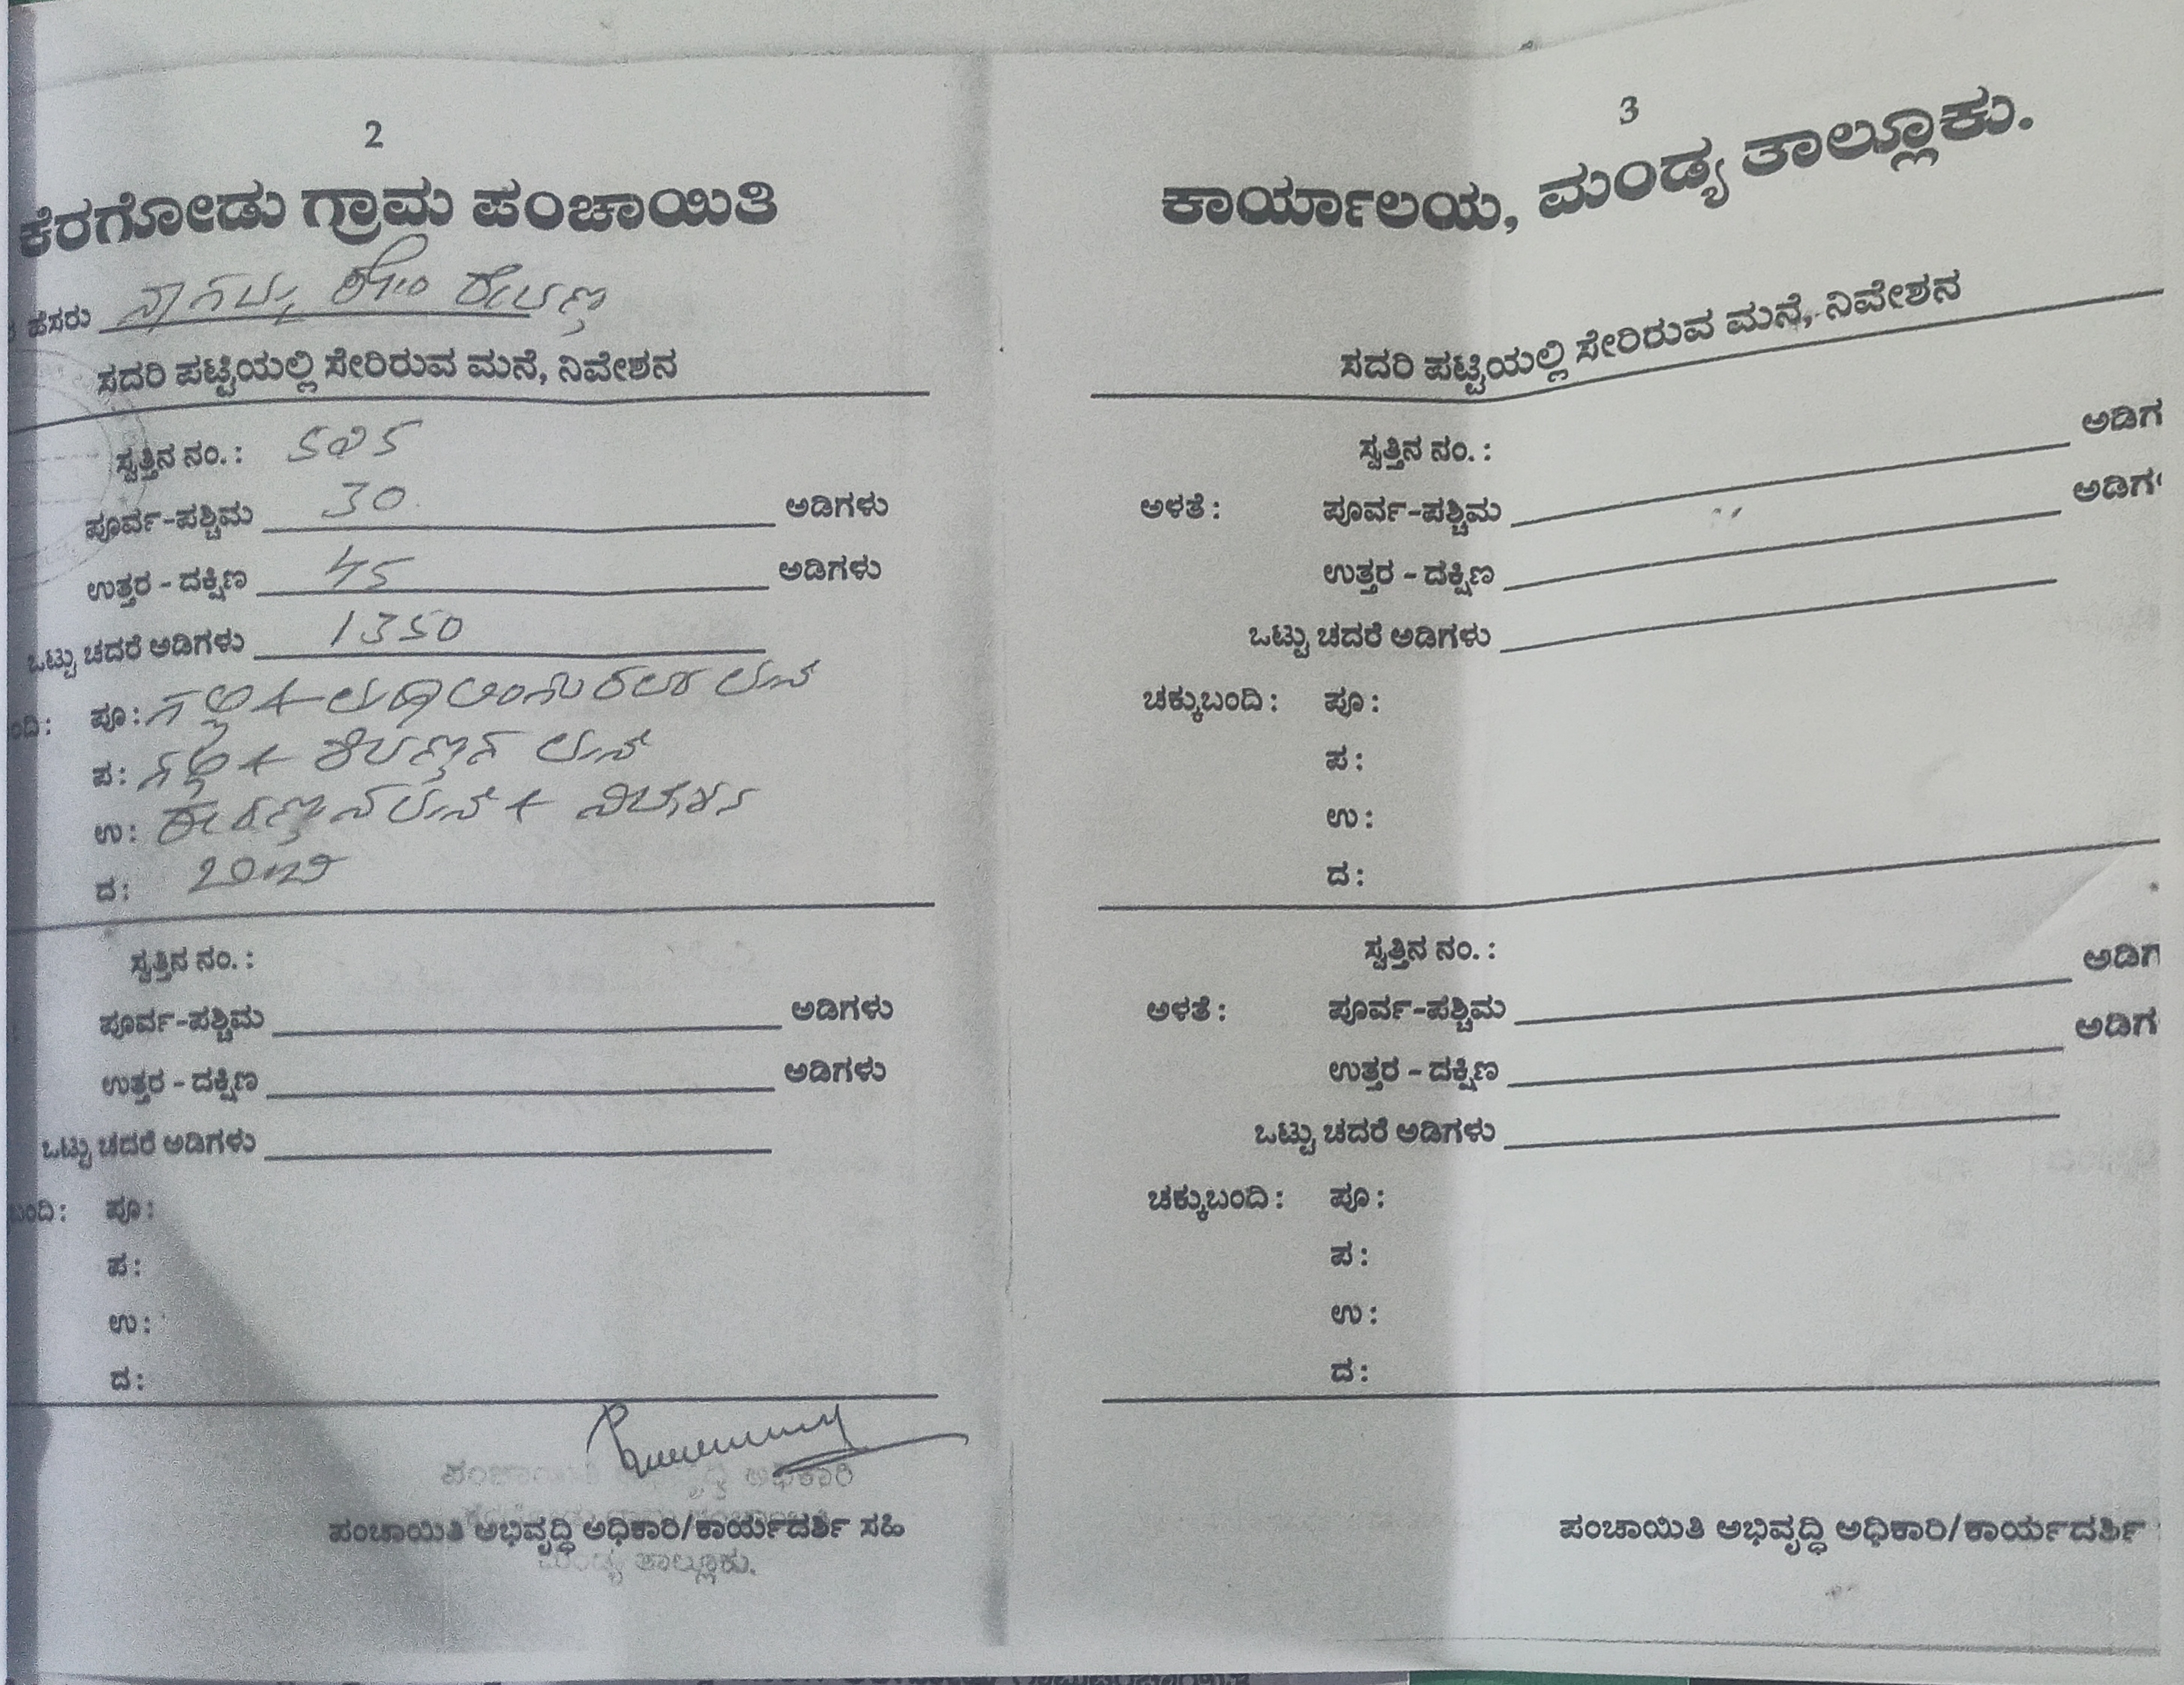 2
ಕೆರಗೋಡು ಗ್ರಾಮ ಪಂಚಾಯಿತಿ
ಹೆಸರು ನಾಗಮ್ಮ ಕೋಂ
ಸದರಿ ಪಟ್ಟಿಯಲ್ಲಿ ಸೇರಿರುವ ಮನೆ, ನಿವೇಶನ
ಸ್ವತ್ತಿನ ನಂ. : 505
ಪೂರ್ವ-ಪಶ್ಚಿಮ 30 ಅಡಿಗಳು
ಉತ್ತರ - ದಕ್ಷಿಣ 45 ಅಡಿಗಳು
ಒಟ್ಟು ಚದರೆ ಅಡಿಗಳು 1350
ಪೂ : ಗಲ್ಲಿ + ಮನೆ
ಪ : ಗಲ್ಲಿ + ಮನೆ
ಉ : ಮನೆ +
ದ : ಓಣಿ
ಸ್ವತ್ತಿನ ನಂ. :
ಪೂರ್ವ-ಪಶ್ಚಿಮ ಅಡಿಗಳು
ಉತ್ತರ - ದಕ್ಷಿಣ ಅಡಿಗಳು
ಒಟ್ಟು ಚದರೆ ಅಡಿಗಳು
ಪೂ :
ಪ :
ಉ :
ದ :
ಪಂಚಾಯಿತಿ ಅಭಿವೃದ್ಧಿ ಅಧಿಕಾರಿ
ಪಂಚಾಯಿತಿ ಅಭಿವೃದ್ಧಿ ಅಧಿಕಾರಿ/ಕಾರ್ಯದರ್ಶಿ ಸಹಿ
ಮಂಡ್ಯ ತಾಲ್ಲೂಕು.
3
ಕಾರ್ಯಾಲಯ, ಮಂಡ್ಯ ತಾಲ್ಲೂಕು.
ಸದರಿ ಪಟ್ಟಿಯಲ್ಲಿ ಸೇರಿರುವ ಮನೆ, ನಿವೇಶನ
ಸ್ವತ್ತಿನ ನಂ. :
ಅಳತೆ : ಪೂರ್ವ-ಪಶ್ಚಿಮ ಅಡಿಗ
ಉತ್ತರ - ದಕ್ಷಿಣ ಅಡಿಗ
ಒಟ್ಟು ಚದರೆ ಅಡಿಗಳು
ಚಕ್ಕುಬಂದಿ : ಪೂ :
ಪ :
ಉ :
ದ :
ಸ್ವತ್ತಿನ ನಂ. :
ಅಳತೆ : ಪೂರ್ವ-ಪಶ್ಚಿಮ ಅಡಿಗ
ಉತ್ತರ - ದಕ್ಷಿಣ ಅಡಿಗ
ಒಟ್ಟು ಚದರೆ ಅಡಿಗಳು
ಚಕ್ಕುಬಂದಿ : ಪೂ :
ಪ :
ಉ :
ದ :
ಪಂಚಾಯಿತಿ ಅಭಿವೃದ್ಧಿ ಅಧಿಕಾರಿ/ಕಾರ್ಯದರ್ಶಿ